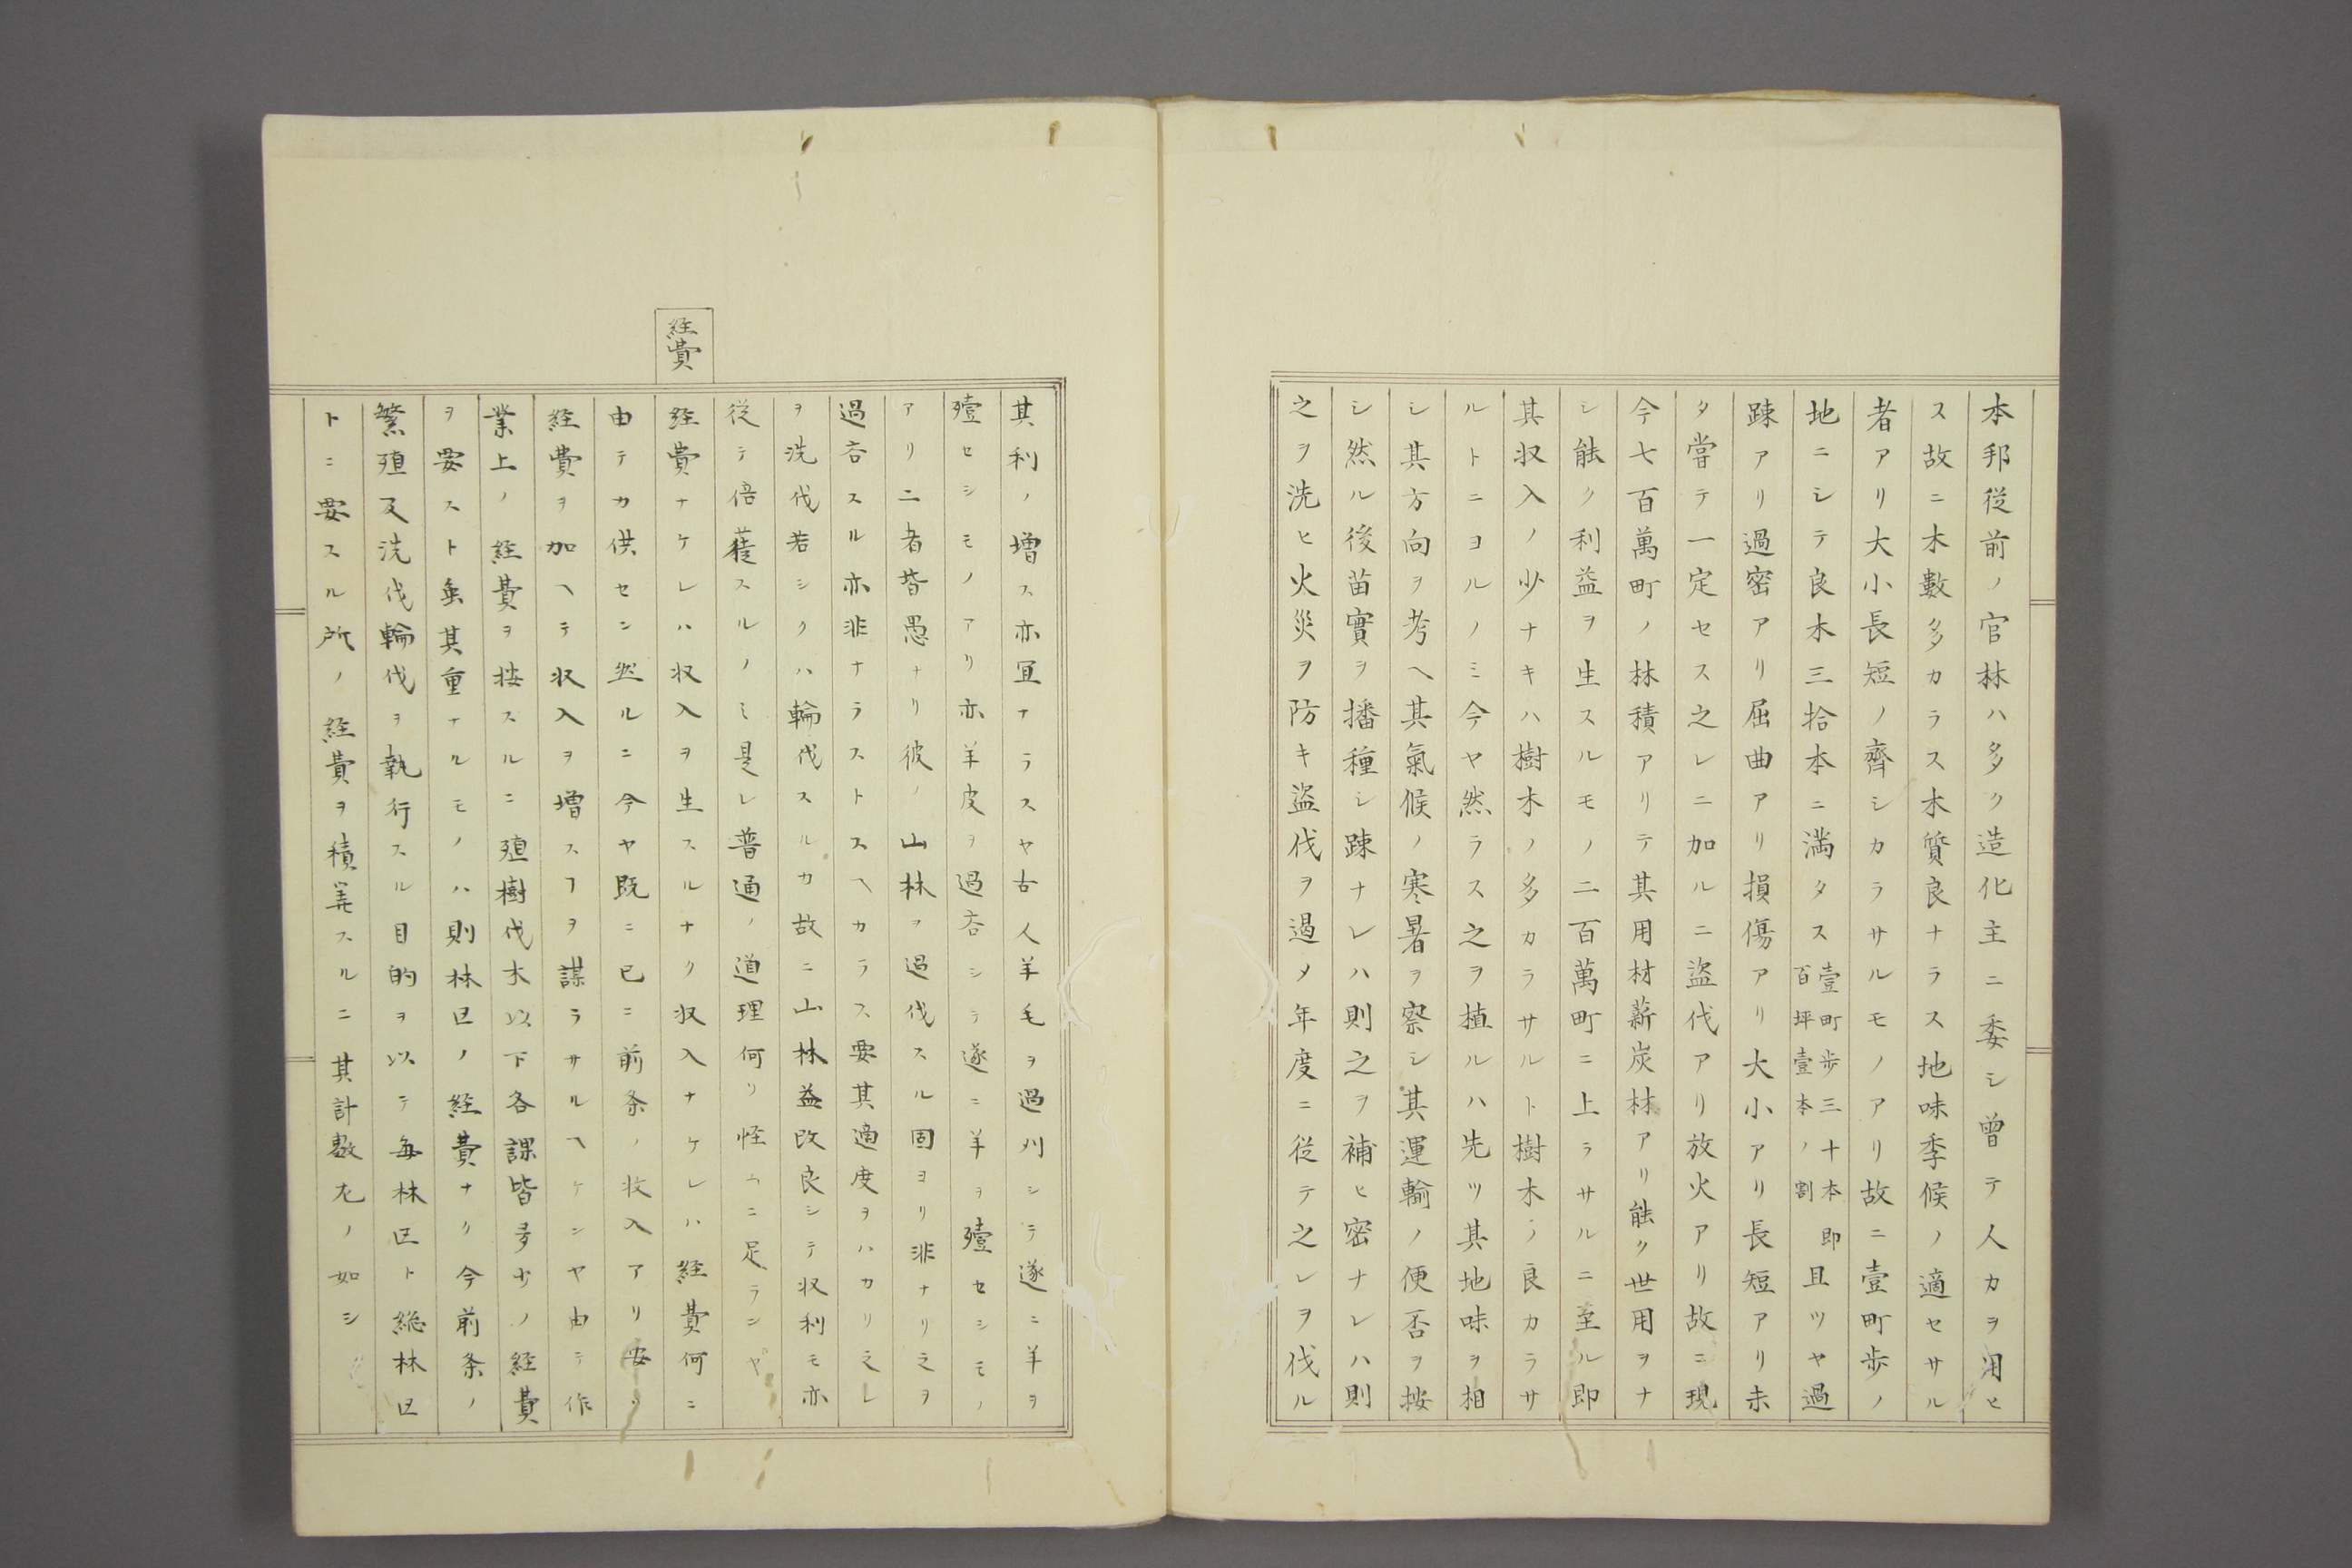 本邦従前ノ官林ハ多ク造化主ニ委シ曽テ人力ヲ用ヒ
ス故ニ木數多カラス木質良ナラス地味季候ノ適セサル
者アリ大小長短ノ齊シカラサルモノアリ故ニ壹町歩ノ
地ニシテ良木三拾本ニ満タス壹町歩三十本即百坪壹本ノ割且ツヤ過
踈アリ過密アリ屈曲アリ損傷アリ大小アリ長短アリ未
タ嘗テ一定セス之レニ加ルニ盗伐アリ放火アリ故ニ現
今七百萬町ノ林積アリテ其用材薪炭材アリ能ク世用ヲナ
シ能ク利益ヲ生スルモノ二百萬町ニ上ラサルニ至ル即
其収入ノ少ナキハ樹木ノ多カラサルト樹木ノ良カラサ
ルトニヨルノミ今ヤ然ラス之ヲ植ルハ先ツ其地味ヲ相
シ其方向ヲ考ヘ其氣候ノ寒暑ヲ察シ其運輸ノ便否ヲ按
シ然ル後苗實ヲ播種シ踈ナレハ則之ヲ補ヒ密ナレハ則
之ヲ洗ヒ火災ヲ防キ盗伐ヲ過メ年度ニ従テ之レヲ伐ル
其利ノ増ス亦冝ナラスヤ古人羊毛ヲ過刈シテ遂ニ羊ヲ
殪セシモノアリ亦羊皮ヲ過吝シテ遂ニ羊ヲ殪セシモノ
アリ二者皆愚ナリ彼ノ山林ヲ過伐スル固ヨリ非ナリ之ヲ
過吝スル亦非ナラストスヘカラス要其適度ヲハカリ之レ
ヲ洗伐若シクハ輪伐スルカ故ニ山林益改良シテ収利モ亦
従テ倍蓰スルノミ是レ普通ノ道理何ソ怪ムニ足ランヤ
経費
経費ナケレハ収入ヲ生スルナク収入ナケレハ経費何ニ
由テカ供セン然ルニ今ヤ既ニ已ニ前条ノ収入アリ安ソ
経費ヲ加ヘテ収入ヲ増スヿヲ謀ラサルヘケンヤ由テ作
業上ノ経費ヲ按スルニ殖樹伐木以下各課皆多少ノ経費
ヲ要スト虽其重ナルモノハ則林区ノ経費ナリ今前条ノ
繁殖及洗伐輪伐ヲ執行スル目的ヲ以テ毎林区ト総林区
トニ要スル所ノ経費ヲ積筭スルニ其計數左ノ如シ